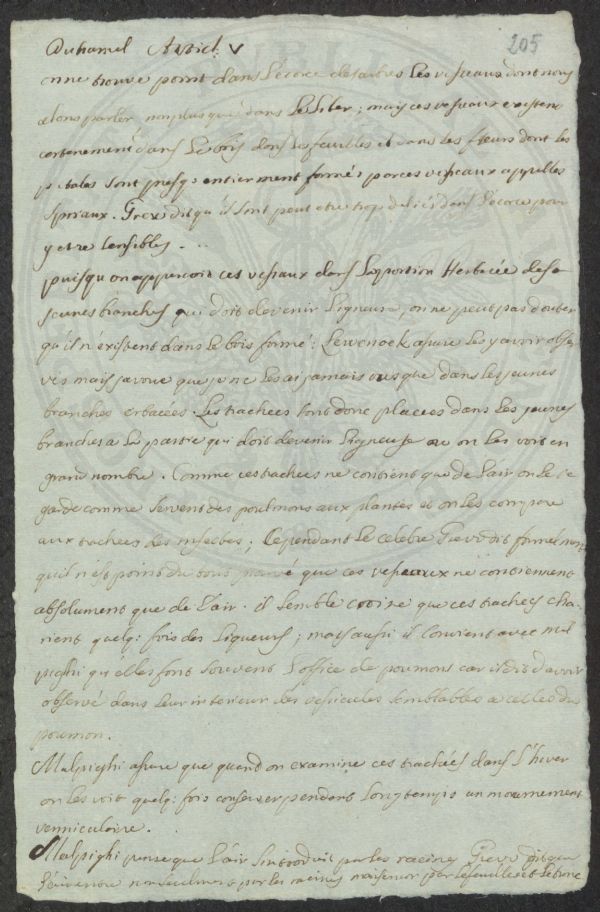 Duhamel Articl. V 205
on ne trouve point dans l'écorce des arbres les vesseaux dont nous
alons parler non plus que dans le liber; mais ces vesseaux existent
certenement dans le bois dans les feuilles et dans les fleurs dont les
petales sont presq. entierment formés par ces vesseaux appellés
spiraux. Grew dit qu'il sont peut etre trop deliés dans l'écorce pour
y etre sensibles. ...
puisqu'on apperçoit ces vesseaux dans la portion Herbacée des
jeunes branches qui doit devenir ligneuse, on ne peut pas douter
qu'il n'existent dans le bois formé: Lewenoek assure les y avoir obser
vés mais j'avoue que je ne les ai jamais vus que dans les jeunes
branches erbacées. Les trachées sont donc placées dans les jeunes
branches a la partie qui doit devenir ligneuse ou on les voit en
grand nombre. Comme ces trachées ne contienent que de l'air on le re
garde comme servent des poulmons aux plantes et on les compare
aux trachées des insectes; Cependant le celebre Grew dit formelment
qu'il n'est point du tout prouvé que ces vesseaux ne contiennent
absolument que de l'air. il semble croire que ces trachées cha
rient quelq: fois des liqueurs; mais aussi il convient avec Mal
pighi qu'elles font souvent l'office de poumons car il dit d'avoir
observé dans leur interieur des vesicules semblables a celles du
poumon.
Malpighi assure que quand on examine ces trachées dans l'hiver
on les voit quelq: fois conserver pendant longtemps un mouvement
vermiculaire.
Malpighi pense que l'air s'introduit par les racines Grew dit que
l'air entre non seulment par les racines mais encor par les feuilles et